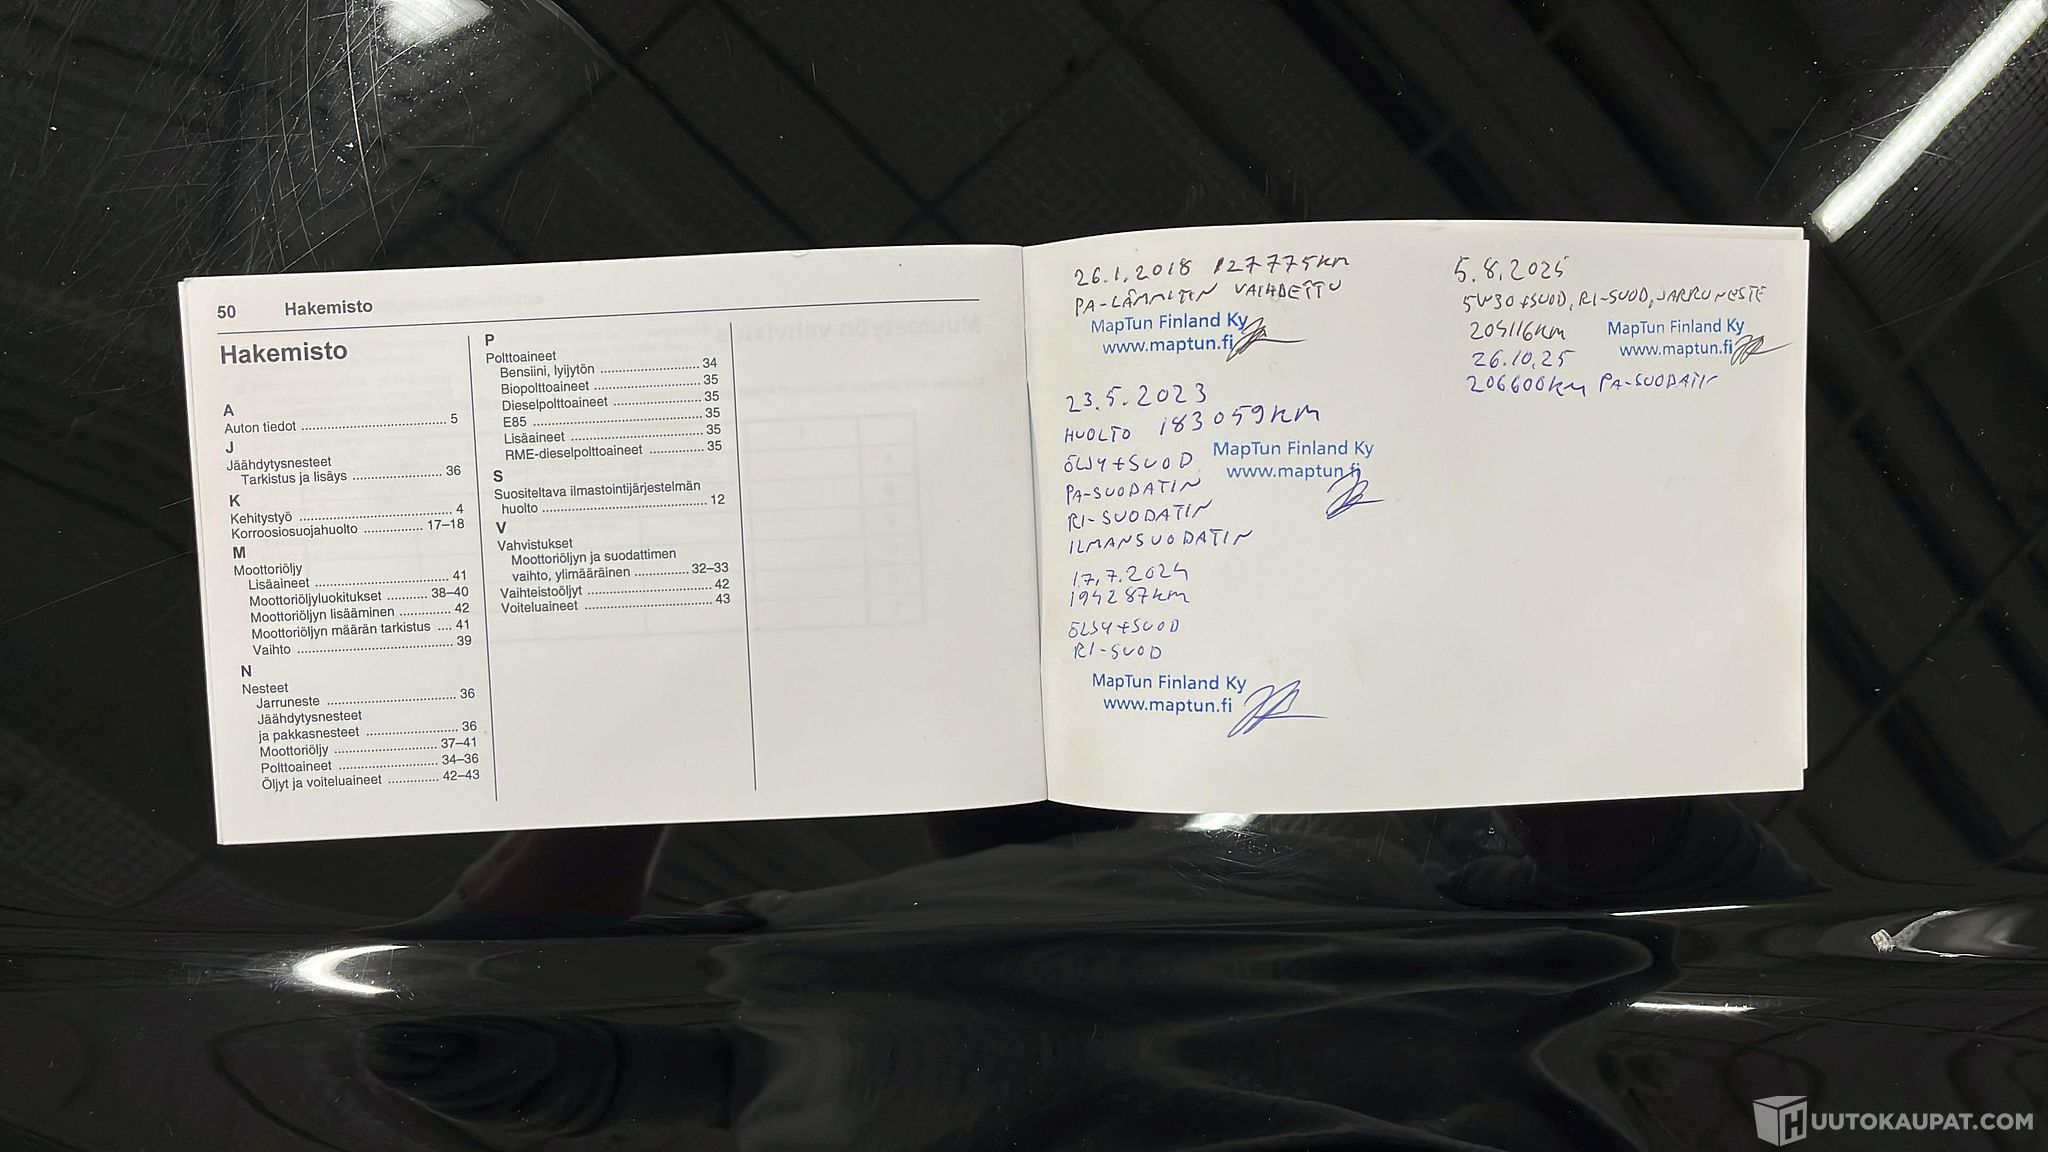 50 Hakemisto
Hakemisto
A
Auton tiedot ........................................ 5
J
Jäähdytysnesteet
Tarkistus ja lisäys ........................ 36
K
Kehitystyö ......................................... 4
Korroosiosuojahuolto ................ 17–18
M
Moottoriöljy
Lisäaineet ..................................... 41
Moottoriöljyluokitukset ........... 38–40
Moottoriöljyn lisääminen .............. 42
Moottoriöljyn määrän tarkistus .... 41
Vaihto ........................................... 39
N
Nesteet
Jarruneste ................................... 36
Jäähdytysnesteet
ja pakkasnesteet ......................... 36
Moottoriöljy ............................. 37–41
Polttoaineet ............................. 34–36
Öljyt ja voiteluaineet .............. 42–43
P
Polttoaineet
Bensiini, lyijytön ........................... 34
Biopolttoaineet ............................. 35
Dieselpolttoaineet ........................ 35
E85 ............................................... 35
Lisäaineet ..................................... 35
RME-dieselpolttoaineet ............... 35
S
Suositeltava ilmastointijärjestelmän
huolto .............................................. 12
V
Vahvistukset
Moottoriöljyn ja suodattimen
vaihto, ylimääräinen ............... 32–33
Vaihteistoöljyt ................................. 42
Voiteluaineet ................................... 43
26.1.2018 127775km
PA-LÄMMITIN VAIHDETTU
MapTun Finland Ky
www.maptun.fi
23.5.2023
HUOLTO 183059km
ÖLJY+SUOD
MapTun Finland Ky
www.maptun.fi
PA-SUODATIN
RI-SUODATIN
ILMANSUODATIN
17.7.2024
194287km
ÖLJY+SUOD
RI-SUOD
MapTun Finland Ky
www.maptun.fi
5.8.2025
5W30+SUOD, RI-SUOD, JARRUNESTE
204116km
MapTun Finland Ky
www.maptun.fi
26.10.25
206600km PA-SUODATIN
HUUTOKAUPAT.COM